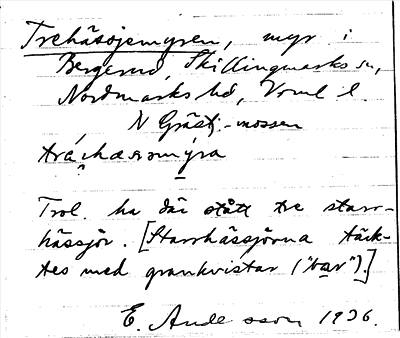 Trehäsöjemyren, myr i
Bergerud, Skillingmarks sn,
Nordmarks hd, Värml l.
N Grästj.-mossen
Trol. ha där stått tre starr-
hässjör. [Starrhässjorna täck-
tes med grankvistar ("bar").]
E. Andersson 1936.